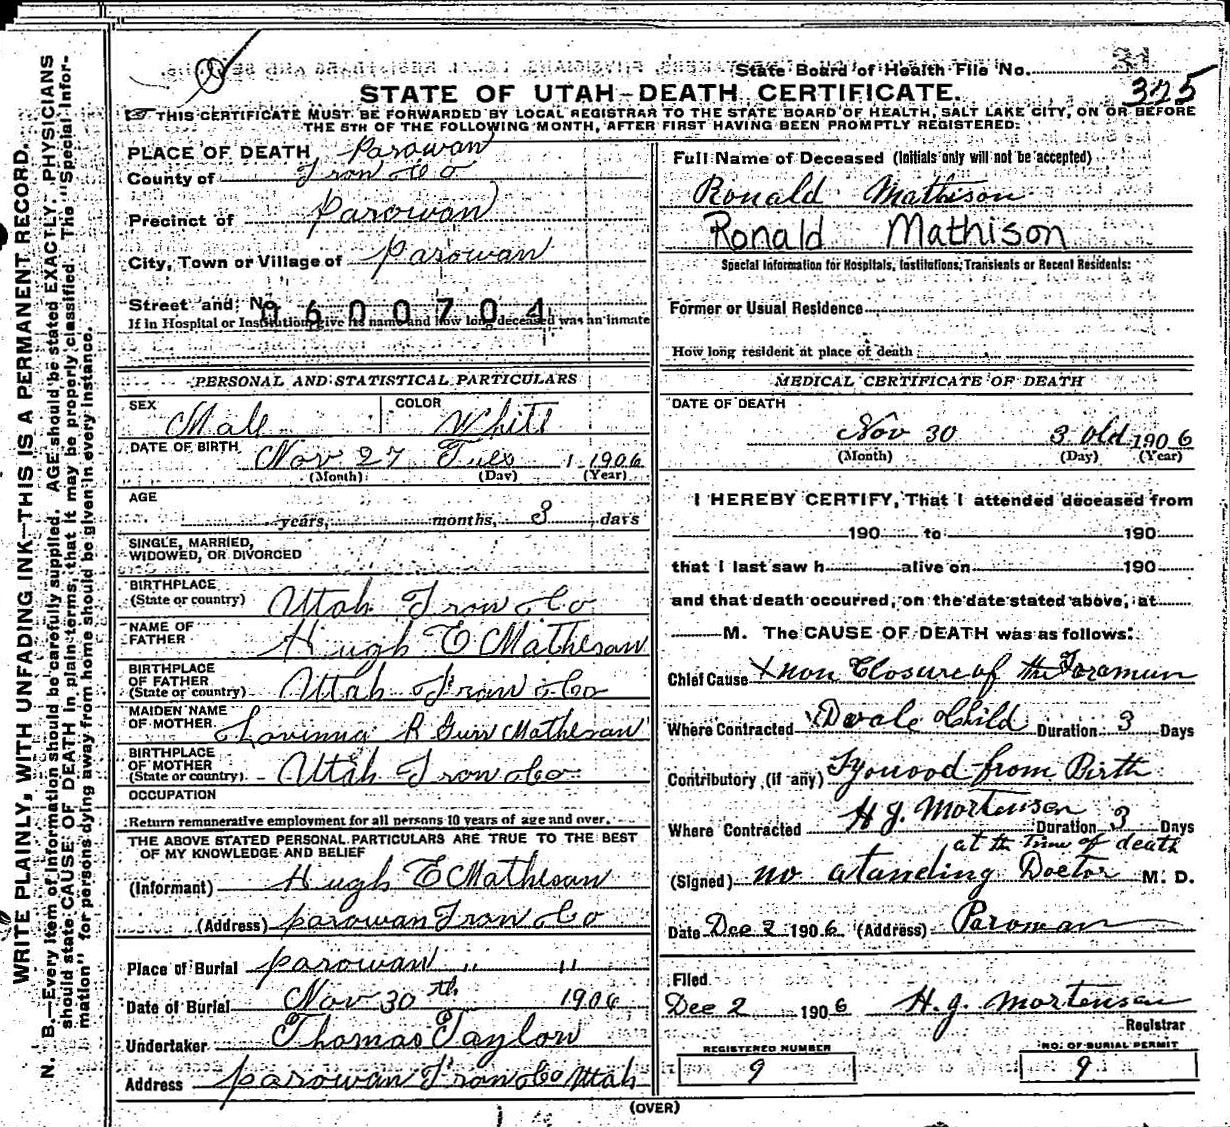 State Board of Health File No.
325
STATE OF UTAH-DEATH CERTIFICATE.
THIS CERTIFICATE MUST BE FORWARDED BY LOCAL REGISTRAR TO THE STATE BOARD OF HEALTH, SALT LAKE CITY, ON OR BEFORE
THE 5TH OF THE FOLLOWING MONTH, AFTER FIRST HAVING BEEN PROMPTLY REGISTERED.
WRITE PLAINLY, WITH UNFADING INK—THIS IS A PERMANENT RECORD.
N. B.—Every item of information should be carefully supplied. AGE should be stated EXACTLY. PHYSICIANS
should state CAUSE OF DEATH in plain terms, that it may be properly classified. The "Special Infor-
mation" for persons dying away from home should be given in every instance.
PLACE OF DEATH Parowan
County of Iron Co
Precinct of Parowan
City, Town or Village of Parowan
Street and No.
0600704
If in Hospital or Institution, give its name and how long deceased was an inmate
PERSONAL AND STATISTICAL PARTICULARS
SEX Male COLOR White
DATE OF BIRTH Nov 27 Tues 1906
(Month) (Day) (Year)
AGE
years, months, 3 days
SINGLE, MARRIED,
WIDOWED, OR DIVORCED
BIRTHPLACE
(State or country) Utah Iron Co
NAME OF
FATHER Hugh E Matheson
BIRTHPLACE
OF FATHER
(State or country) Utah Iron Co
MAIDEN NAME
OF MOTHER Lovinna R Gurr Matheson
BIRTHPLACE
OF MOTHER
(State or country) Utah Iron Co
OCCUPATION
Return remunerative employment for all persons 10 years of age and over.
THE ABOVE STATED PERSONAL PARTICULARS ARE TRUE TO THE BEST
OF MY KNOWLEDGE AND BELIEF
(Informant) Hugh E Matheson
(Address) Parowan Iron Co
Place of Burial Parowan " "
Date of Burial Nov 30th 1906
Undertaker Thomas Taylor
Address Parowan Iron Co Utah
Full Name of Deceased (Initials only will not be accepted)
Ronald Mathison
Ronald Mathison
Special Information for Hospitals, Institutions, Transients or Recent Residents:
Former or Usual Residence
How long resident at place of death
MEDICAL CERTIFICATE OF DEATH
DATE OF DEATH
Nov 30 3 old 1906
(Month) (Day) (Year)
I HEREBY CERTIFY, That I attended deceased from
190 to 190
that I last saw h alive on 190
and that death occurred, on the date stated above, at
M. The CAUSE OF DEATH was as follows:
Chief Cause x non Closure of the Foramun
Where Contracted Child Duration 3 Days
Contributory (if any) from Birth
H. J. Mortensen
Where Contracted Duration 3 Days
at the time of death
(Signed) no atanding Doctor M. D.
Date Dec 2 1906 (Address) Parowan
Filed
Dec 2 1906 H. J. Mortensen
Registrar
REGISTERED NUMBER
9
NO. OF BURIAL PERMIT
9
(OVER)